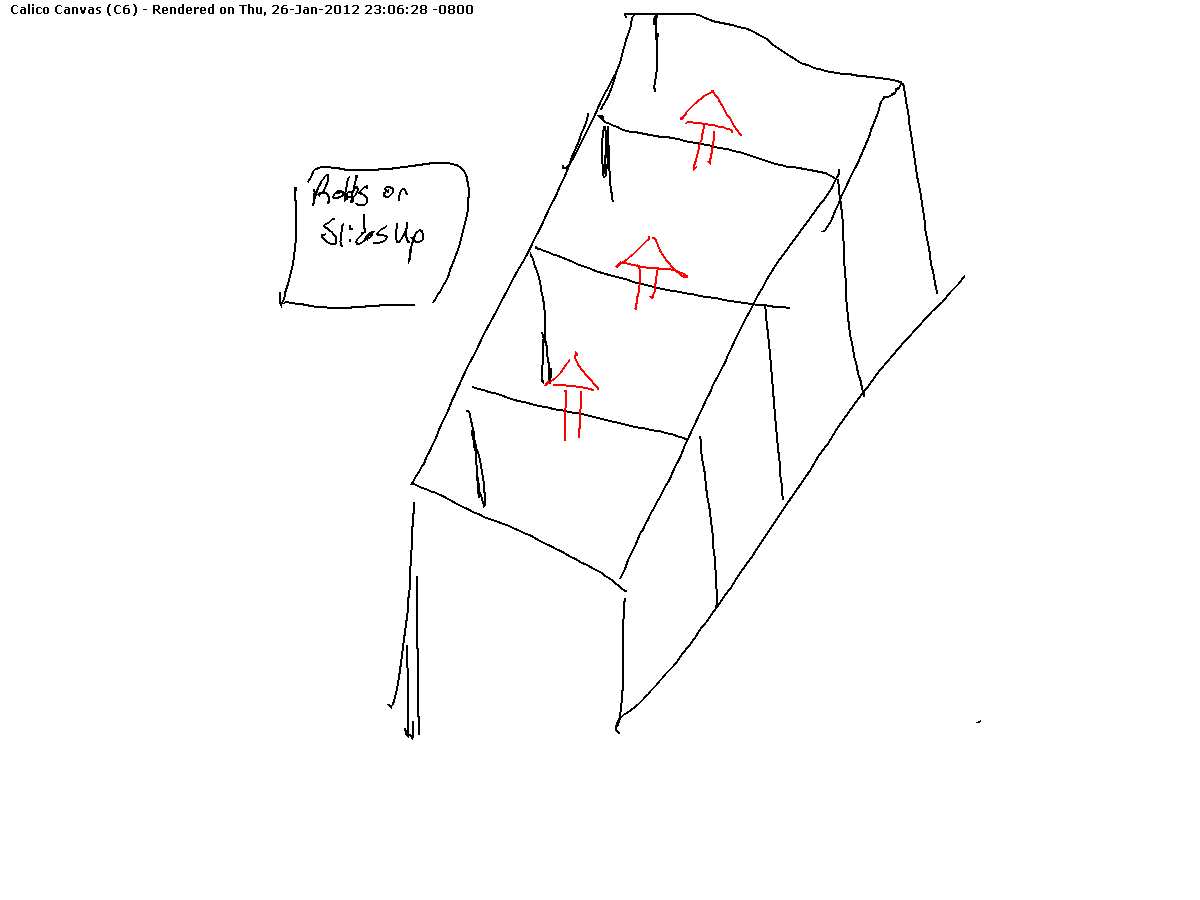 Calico Canvas (C6) - Rendered on Thu, 26-Jan-2012 23:06:28 -0800
Rolls or
Slides Up